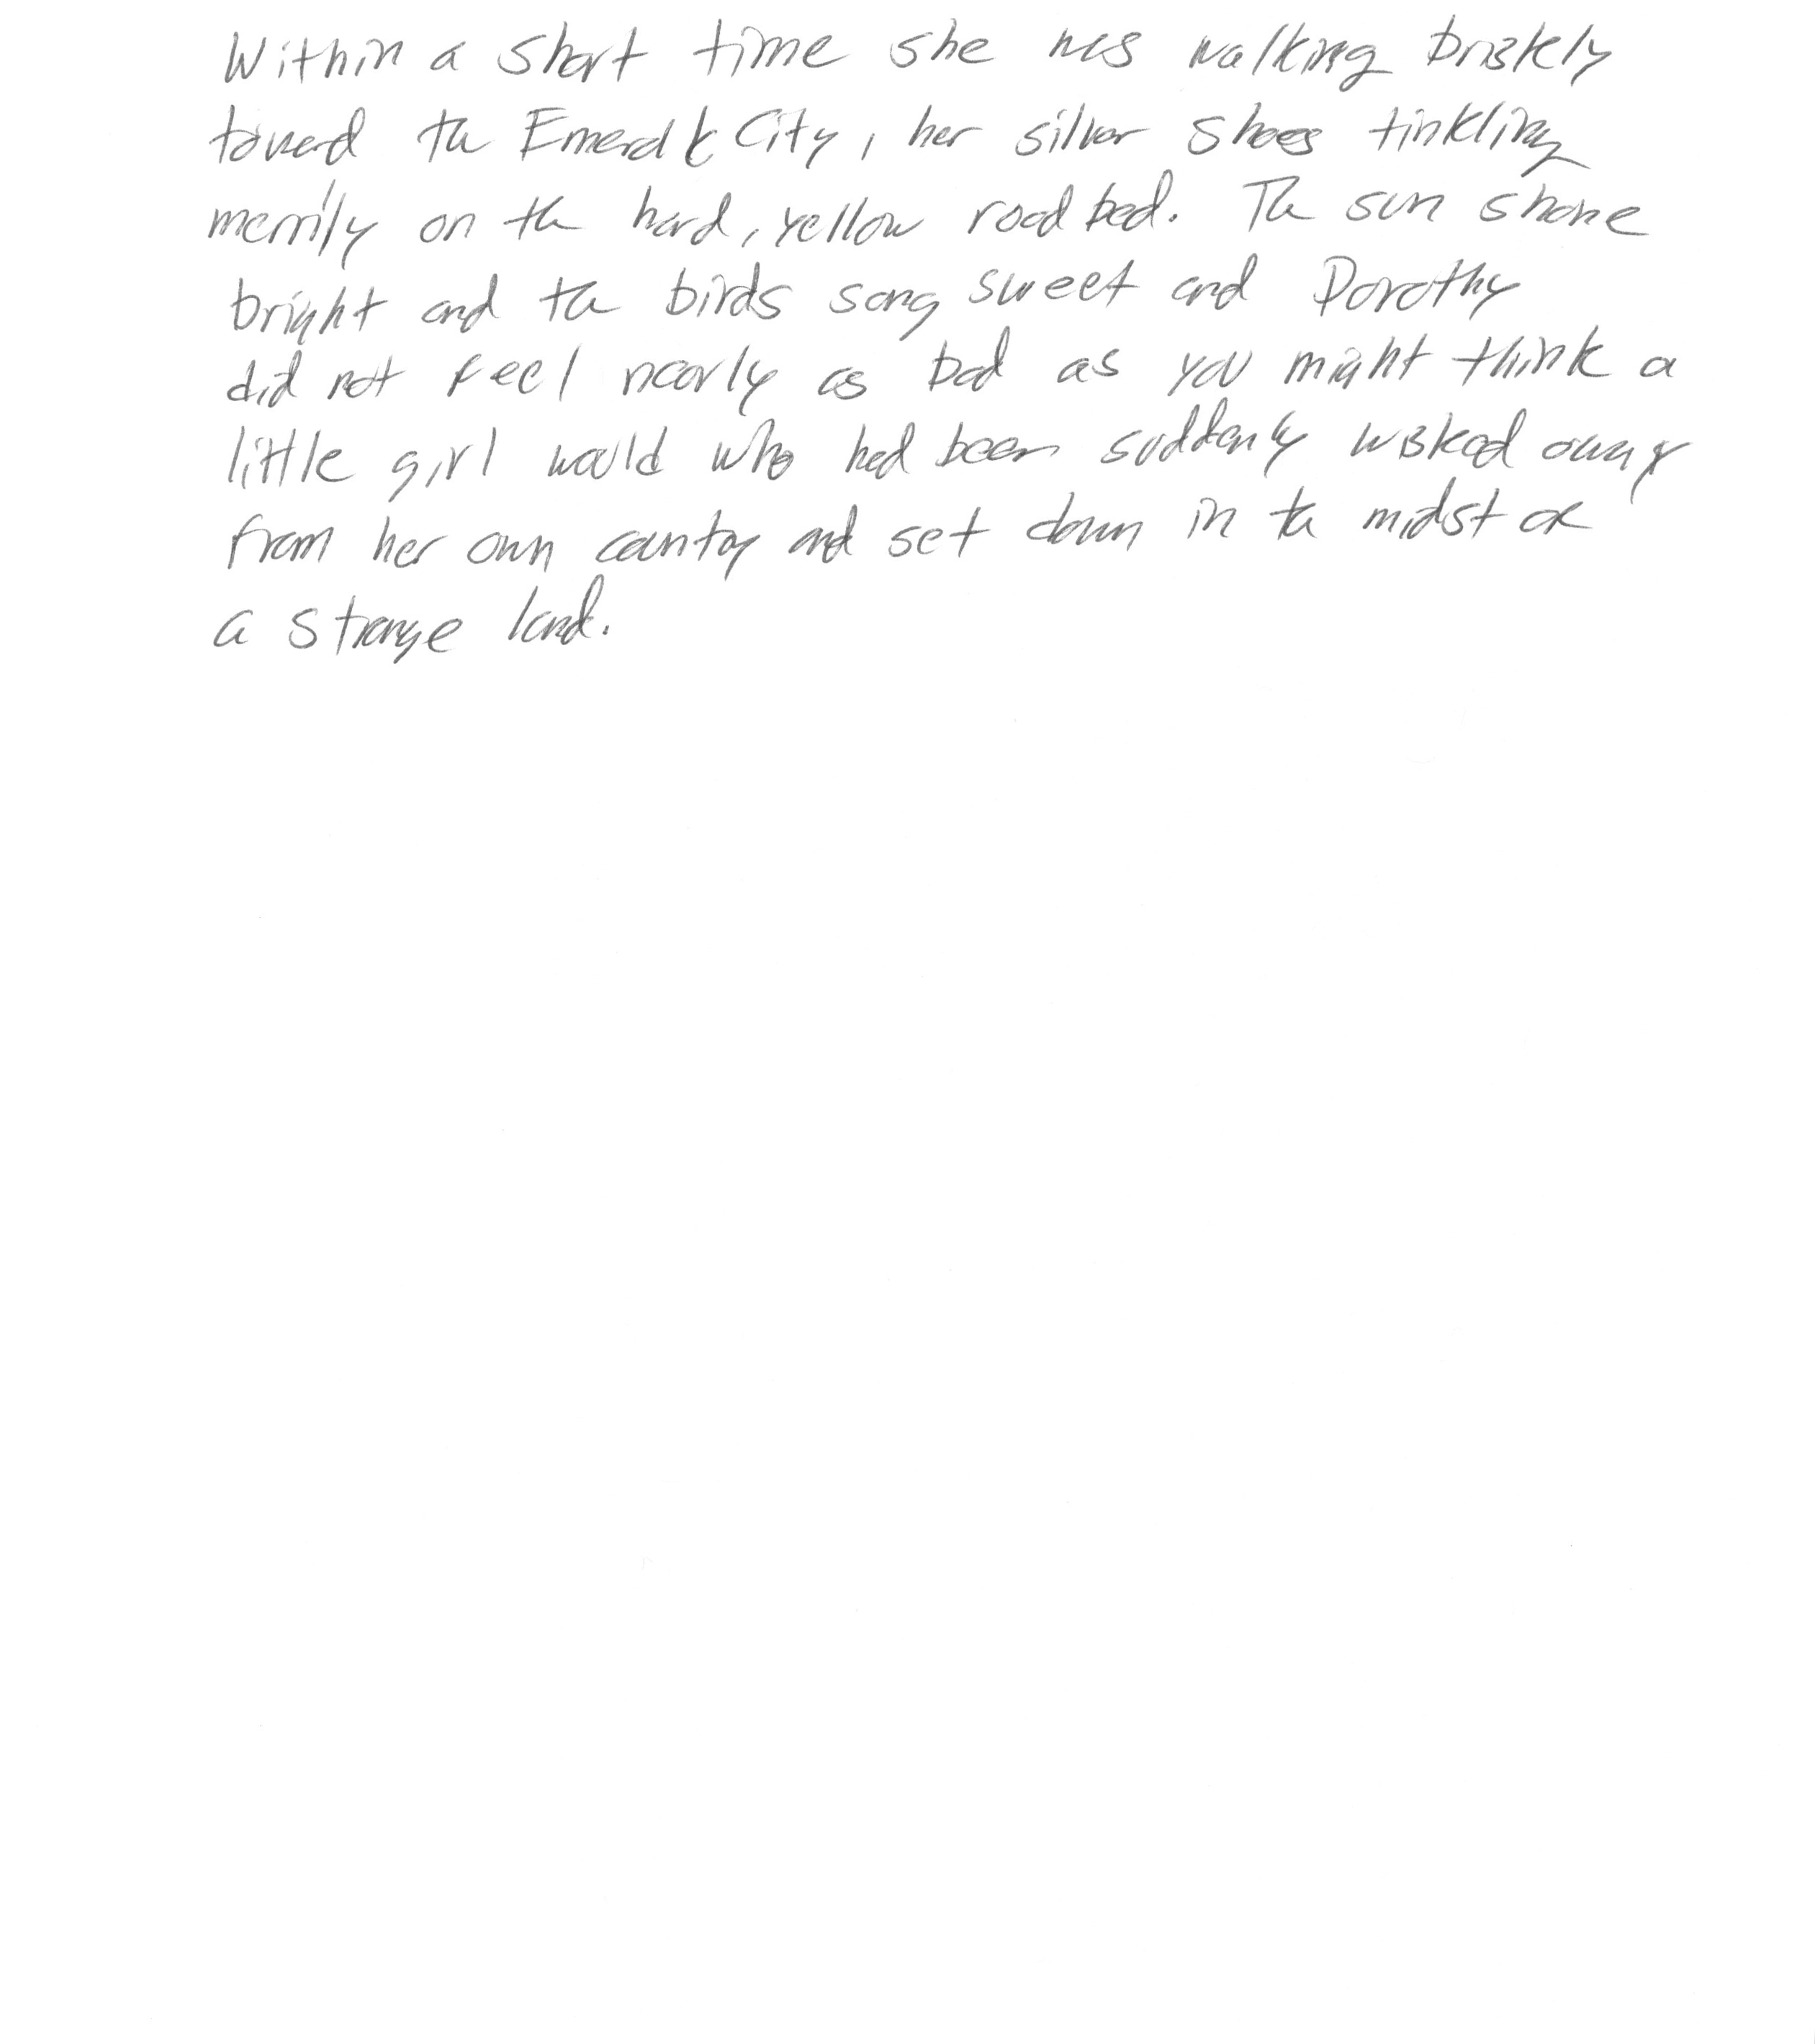 Within a short time she was walking briskly
toward the Emerald City, her silver shoes tinkling
merrily on the hard, yellow roadbed. The sun shone
bright and the birds sang sweet and Dorothy
did not feel nearly as bad as you might think a
little girl would who had been suddenly wisked away
from her own country and set down in the midst of
a strange land.